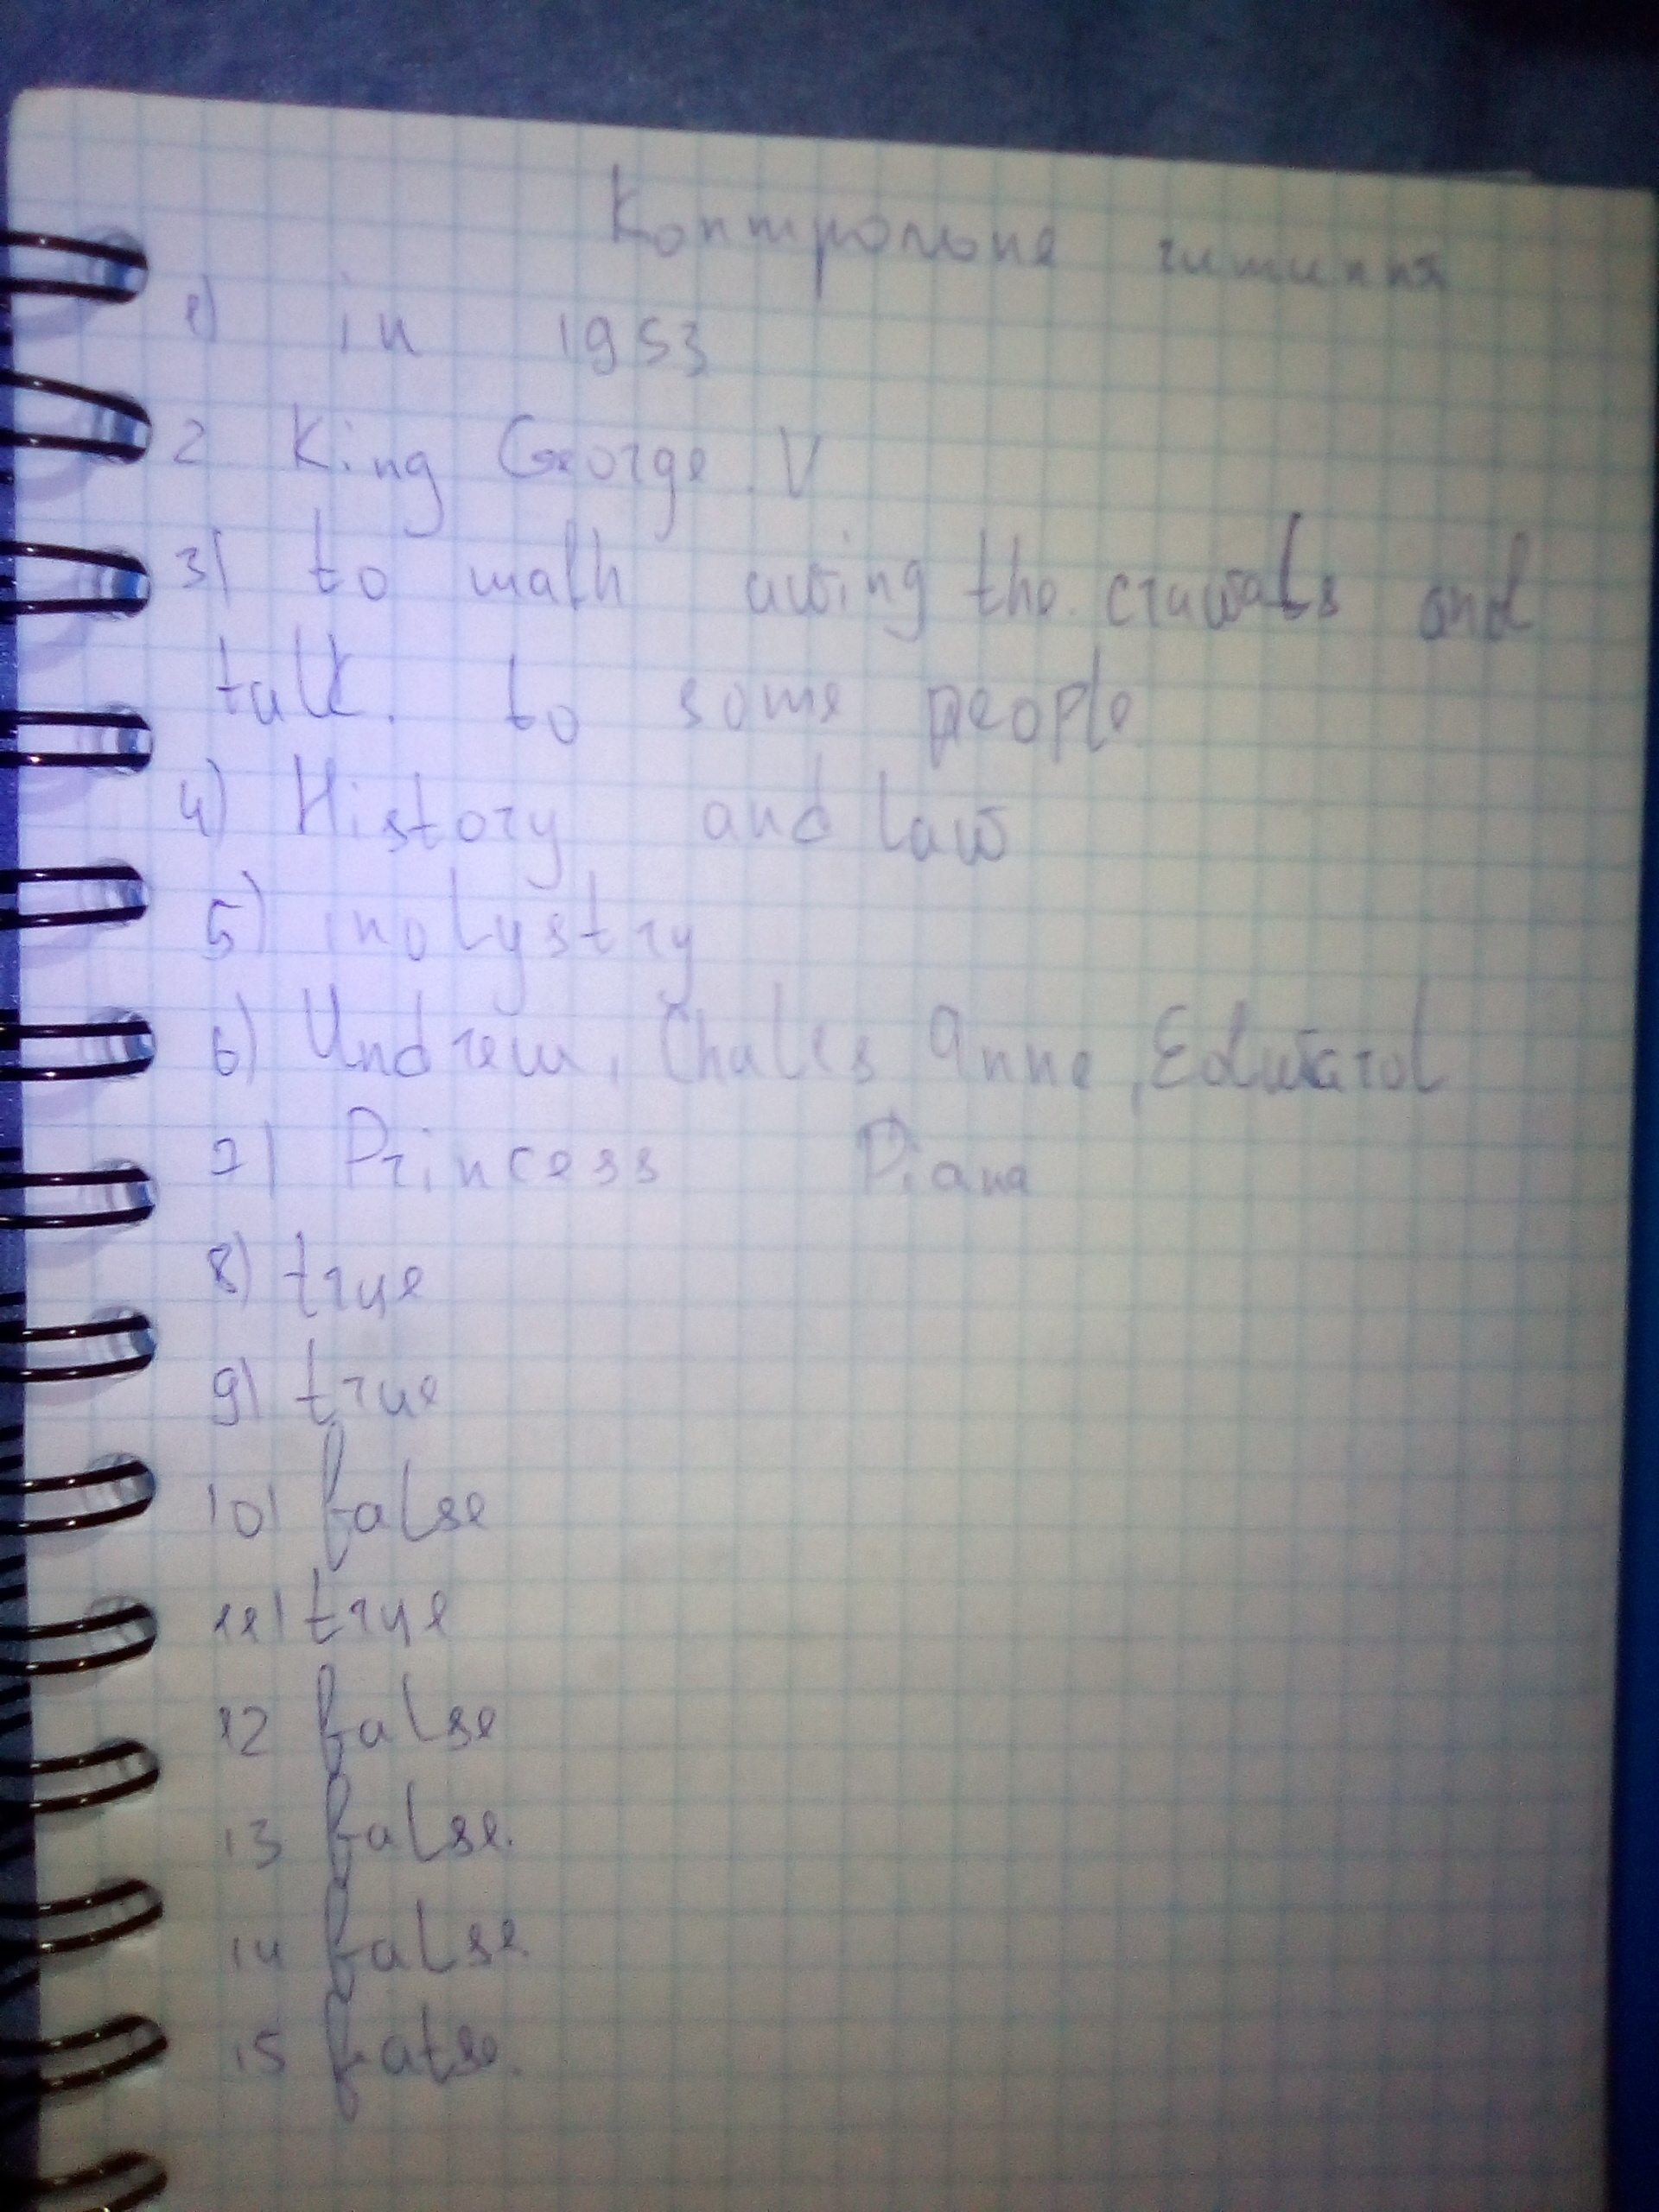 Контрольне читання
1) in 1953
2 King George V
3) to walk awing the crawds and
talk. to some people
4) History and law
5) indystry
6) Andrew, Chales Anne, Edward
7) Princess Diana
8) true
9) true
10) false
11) true
12 false
13 false.
14 false.
15 false.